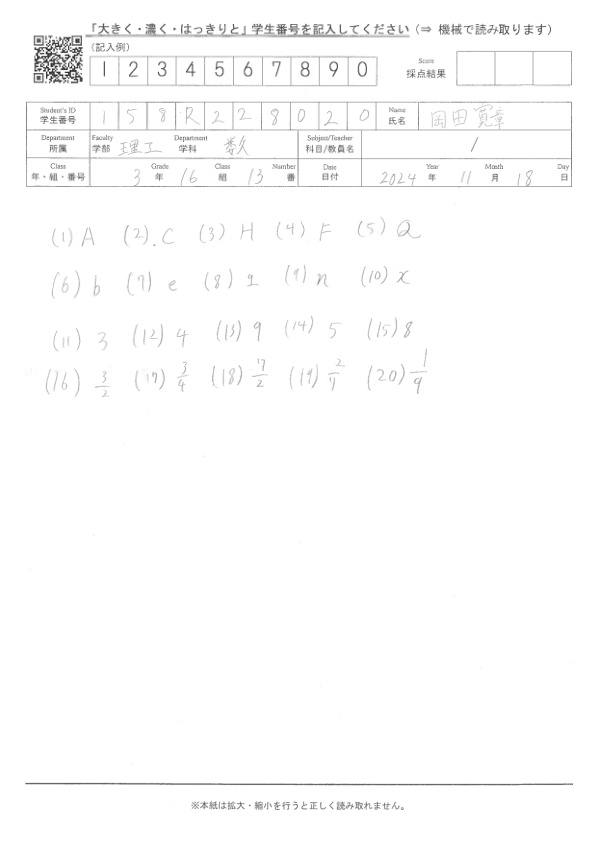 「大きく・濃く・はっきりと」学生番号を記入してください（⇒ 機械で読み取ります）
（記入例）
1 2 3 4 5 6 7 8 9 0
Score 採点結果
Student's ID 学生番号 1 5 8 R 2 2 8 0 2 0 Name 氏名 岡田 寛章
Department 所属 Faculty 学部 理工 Department 学科 数 Subject/Teacher 科目/教員名 /
Class 年・組・番号 3 Grade 年 16 Class 組 13 Number 番 Date 日付 2024 Year 年 11 Month 月 18 Day 日
(1) A (2) . C (3) H (4) F (5) Q
(6) b (7) e (8) q (9) n (10) x
(11) 3 (12) 4 (13) 9 (14) 5 (15) 8
(16) 3/2 (17) 3/4 (18) 7/2 (19) 2/7 (20) 1/9
※本紙は拡大・縮小を行うと正しく読み取れません。